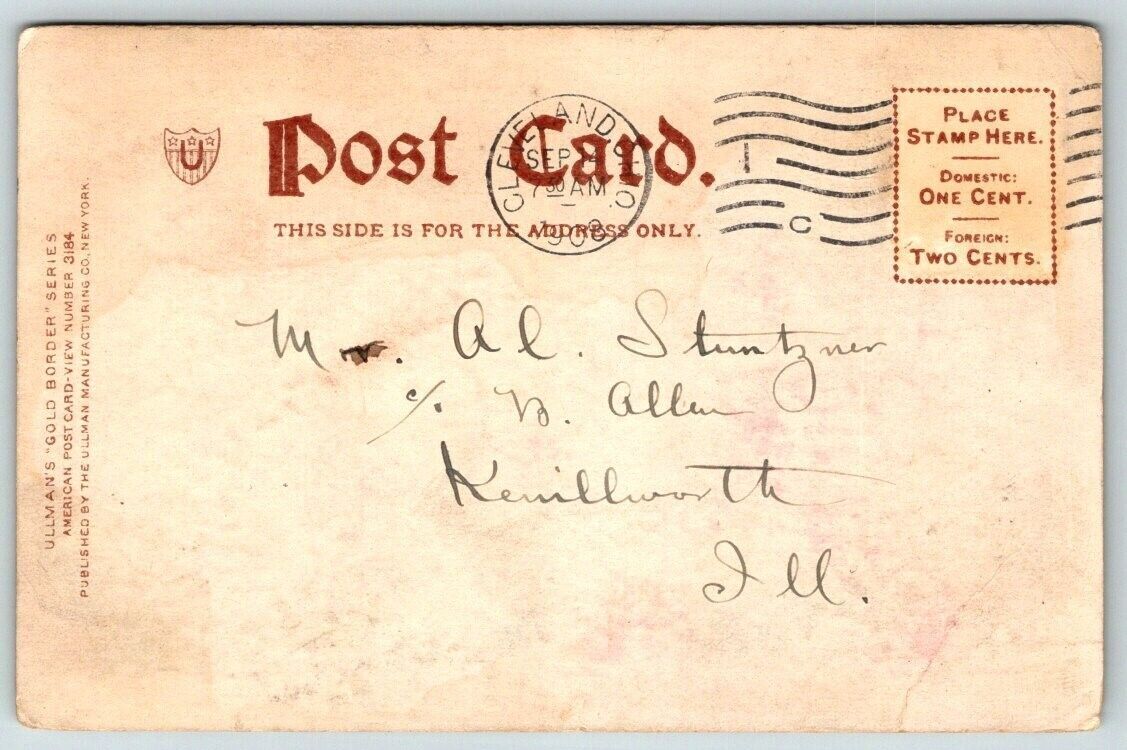 U
Post Card.
THIS SIDE IS FOR THE ADDRESS ONLY.
CLEVELAND, O.
SEP 4
7 30 AM
1908
C
PLACE
STAMP HERE.
DOMESTIC:
ONE CENT.
FOREIGN:
TWO CENTS.
ULLMAN'S "GOLD BORDER" SERIES
AMERICAN POST CARD-VIEW NUMBER 3184
PUBLISHED BY THE ULLMAN MANUFACTURING CO., NEW YORK.
Mr. Al. Stuntzner
c/. B. Allen
Kenillworth
Ill.